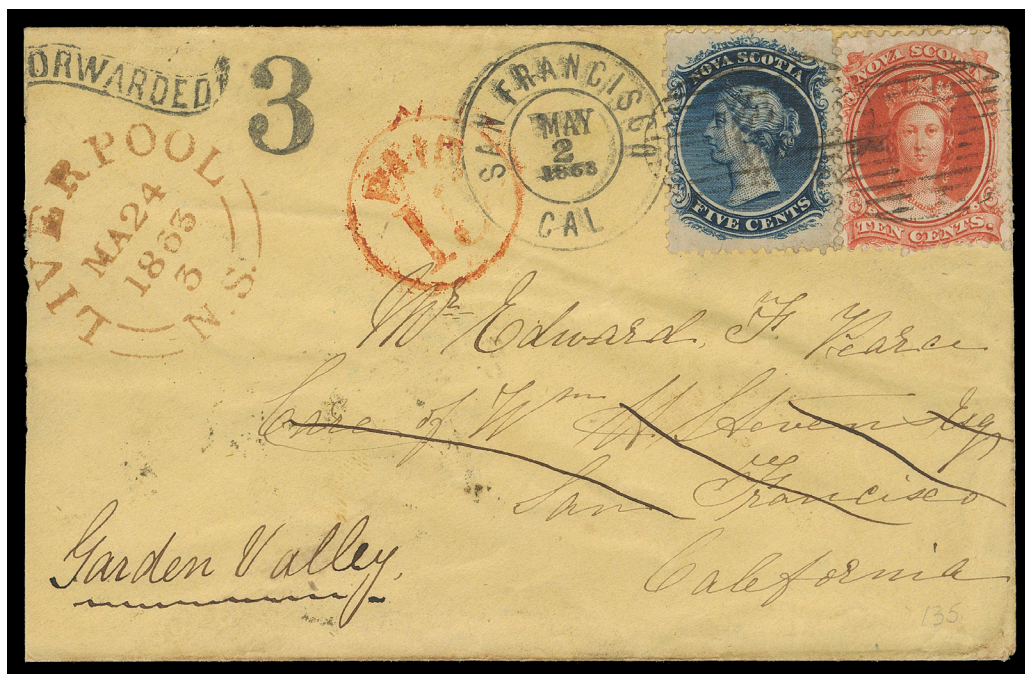 FORWARDED
3
LIVERPOOL
MA 24
1863
3
N.S.
PAID
SAN FRANCISCO
MAY
2
1863
CAL
NOVA SCOTIA
FIVE CENTS
NOVA SCOTIA
TEN CENTS.
Mr Edward F. Pearce
Care of Wm H. Steven Esq
San Francisco
California
Garden Valley.
135